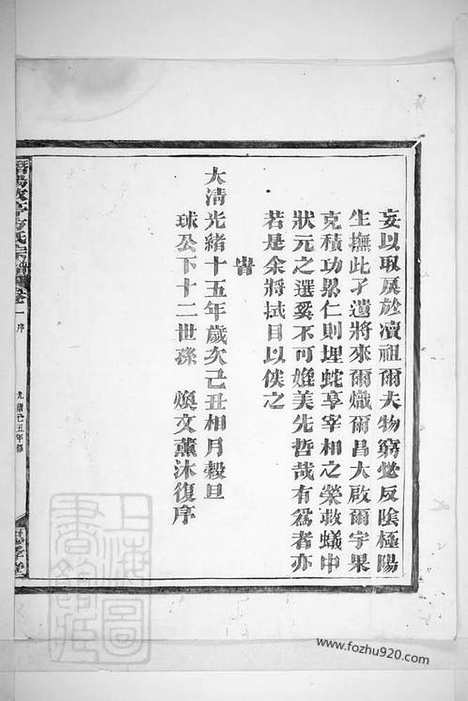 妄以取戾於瀆祖爾夫物窮必反陰極陽
生撫此孑遺將來爾熾爾昌大啟爾宇果
克積功累仁則埋蛇享宰相之榮救蟻中
狀元之選奚不可媲美先哲哉有為者亦
若是余將拭目以俟之
時
大清光緒十五年歲次己丑相月穀旦
球公下十二世孫 煥文薰沐復序
氏宗譜 卷一 序 光緒己丑年修
上海圖書館藏
www.fozhu920.com